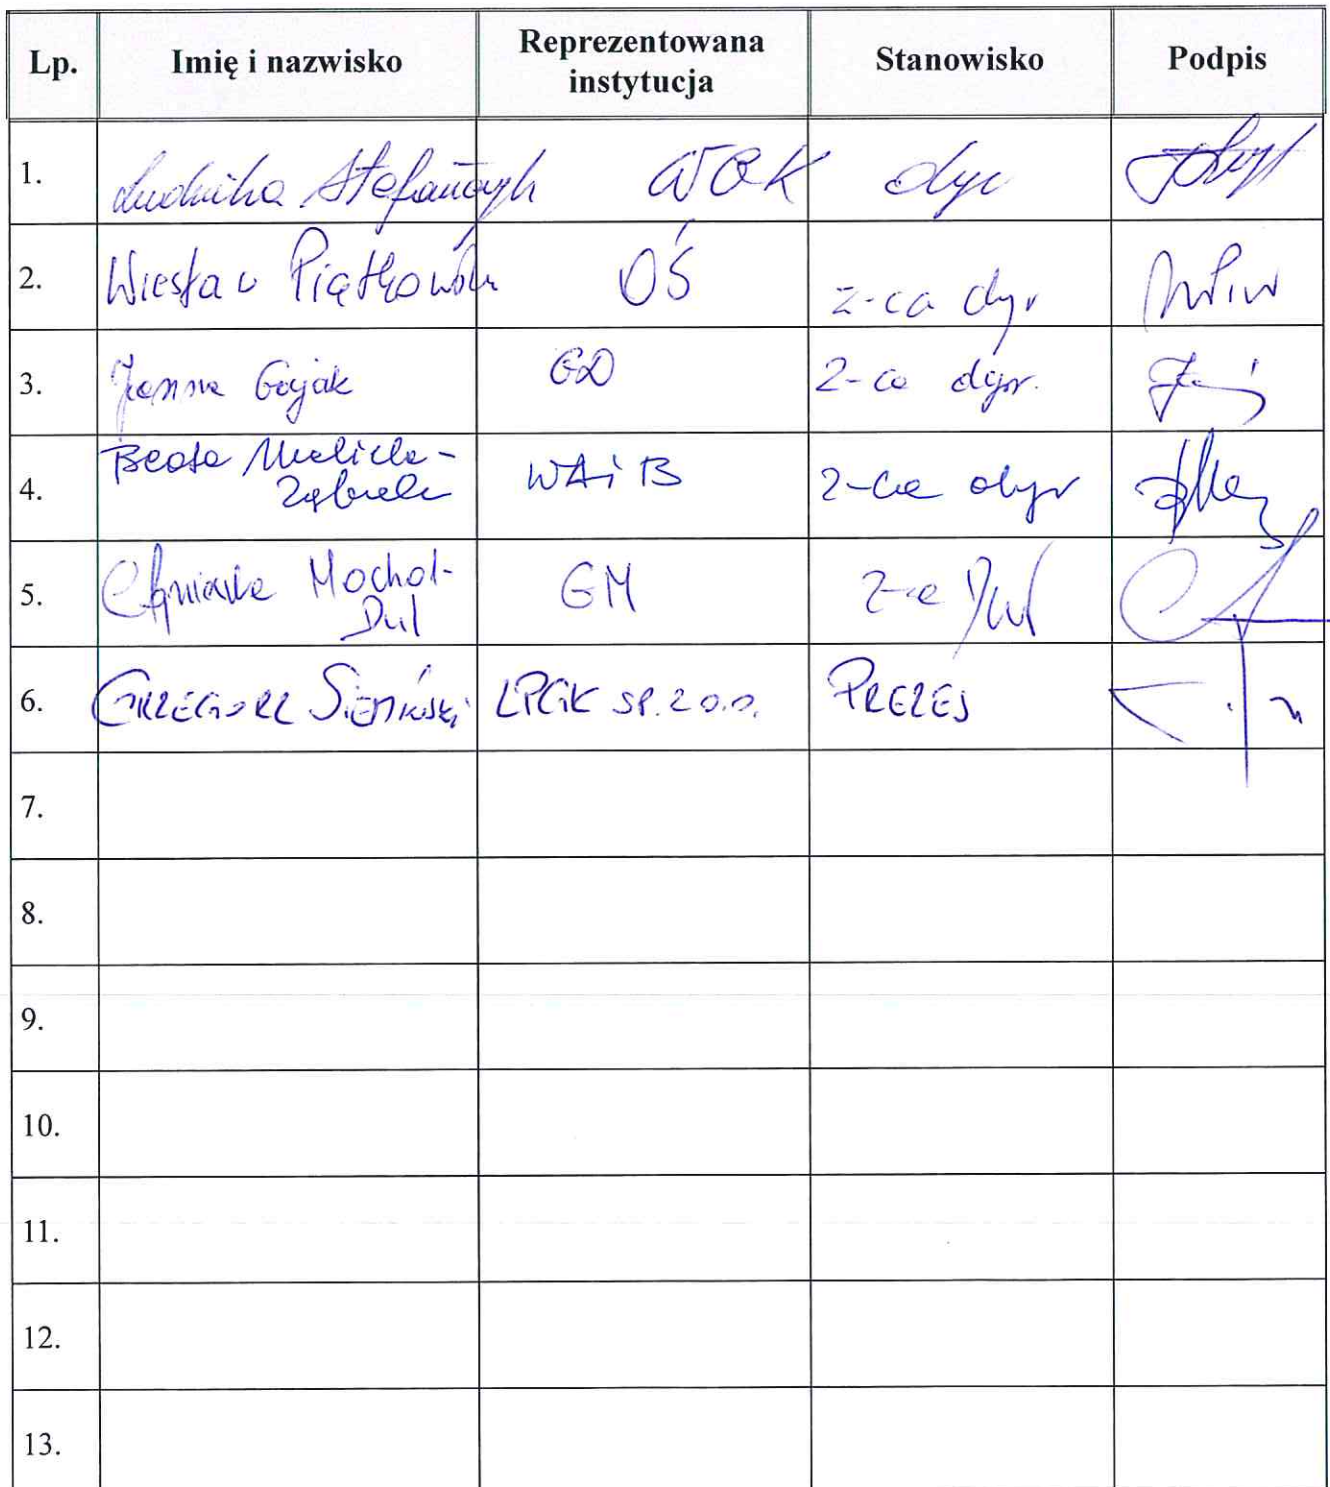 Lp. Imię i nazwisko Reprezentowana instytucja Stanowisko Podpis
1. Ludmiła Stefańczyk WOK dyr
2. Wiesław Piątkowski OŚ z-ca dyr
3. Joanna Gojak GD z-ca dyr.
4. Beata WAiB z-ca dyr
5. Agnieszka Mochol-Dul GM z-ca Dyr
6. GRZEGORZ SIEMIŃSKI LPGK SP. Z O.O. PREZES
7.
8.
9.
10.
11.
12.
13.